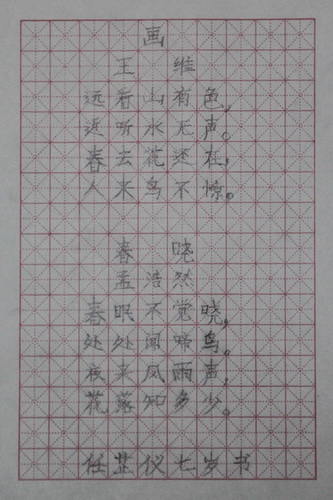 画
王维
远看山有色，
近听水无声。
春去花还在，
人来鸟不惊。
春晓
孟浩然
春眠不觉晓，
处处闻啼鸟。
夜来风雨声，
花落知多少。
任芷仪七岁书